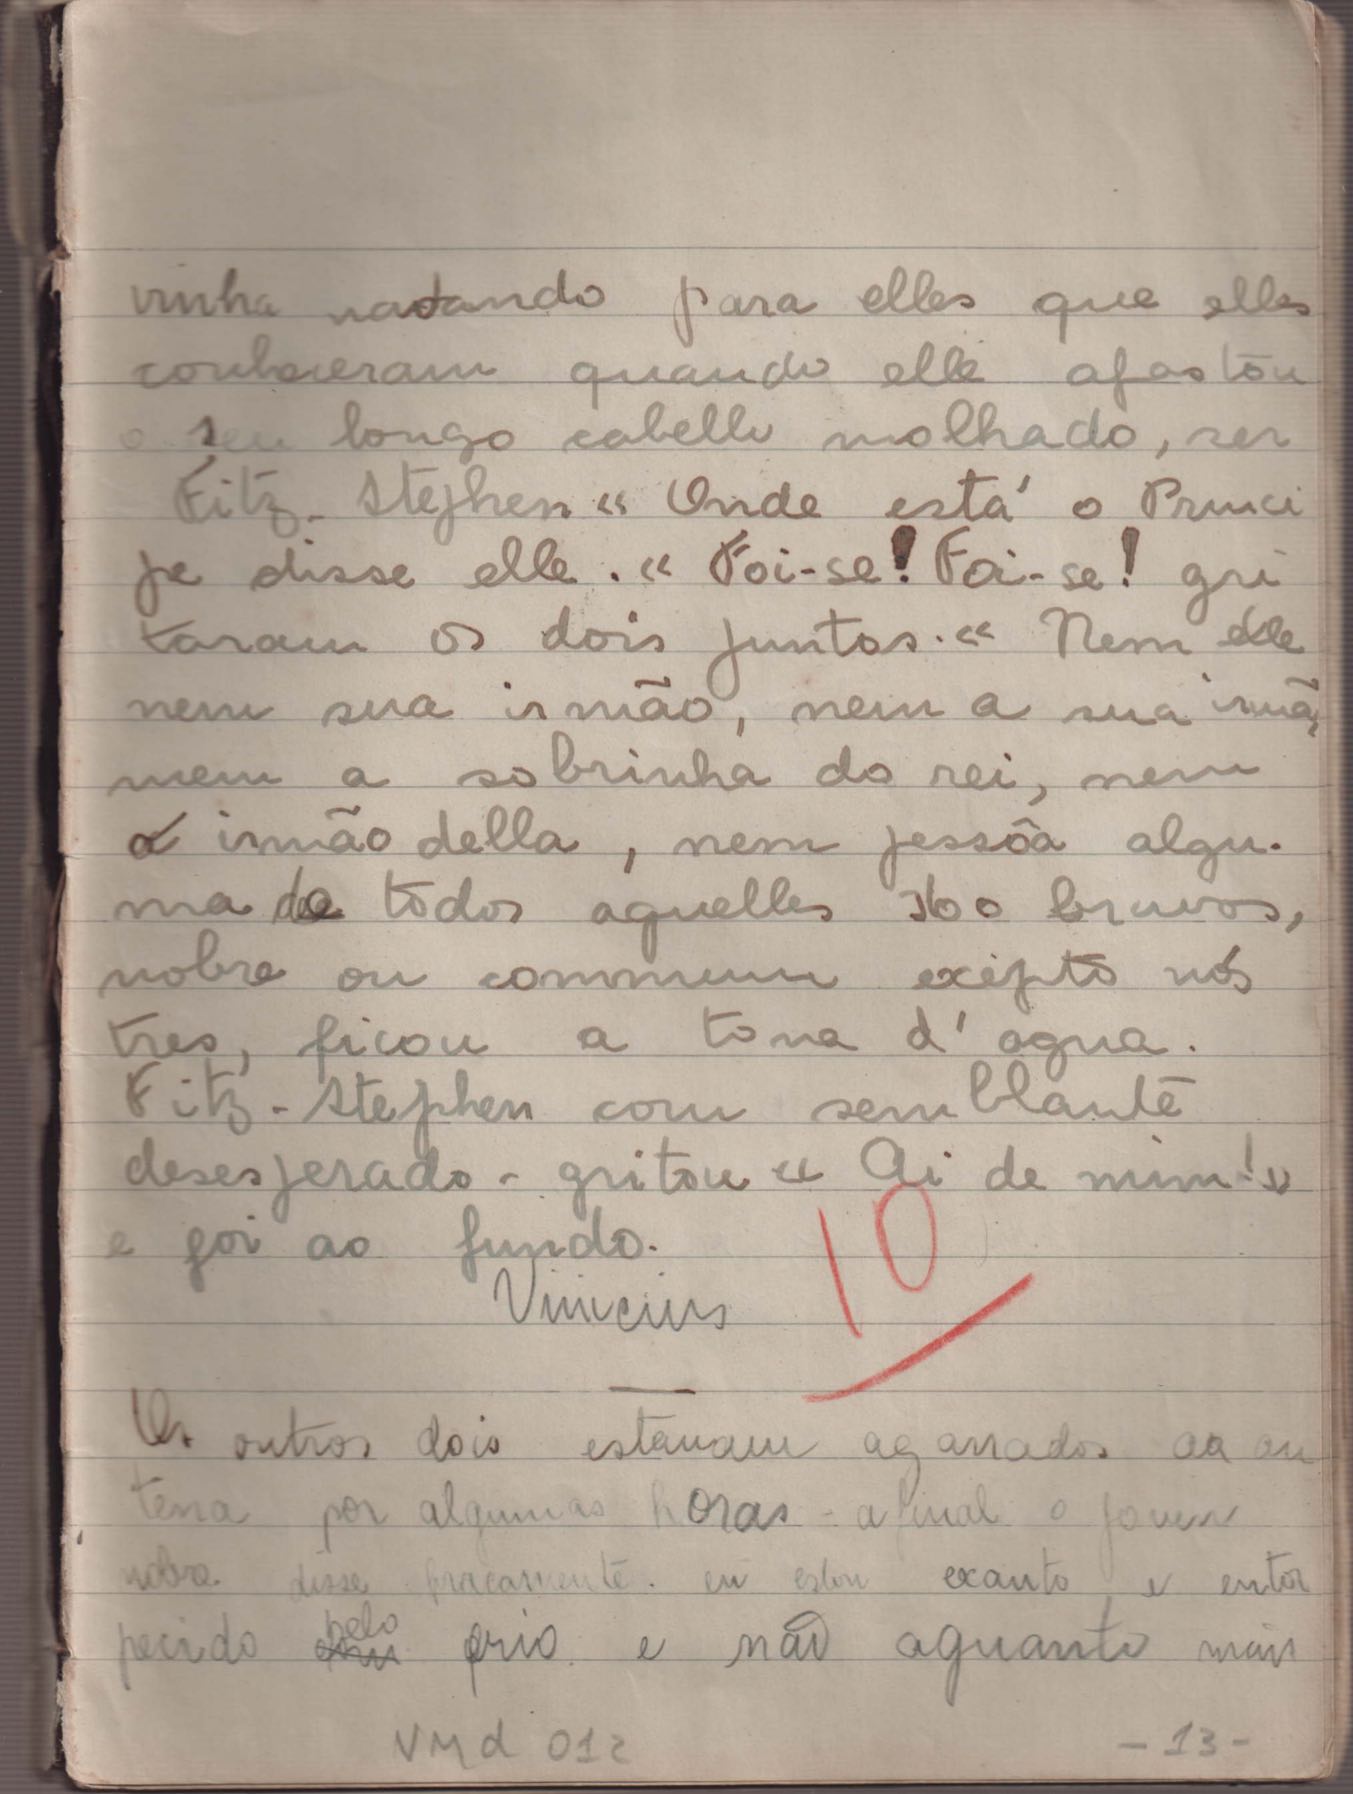 vinha nadando para elles que elles
conheceram quando elle afastou
o seu longo cabello molhado, ser
Fitz-Stephen « Onde está o Princi
pe disse elle. « Foi-se! Foi-se! gri
taram os dois juntos. « Nem elle
nem sua irmão, nem a sua irmã,
nem a sobrinha do rei, nem
o irmão della, nem pessôa algu-
ma de todos aquelles bravos,
nobre ou commum exepto nós
tres, ficou a tona d'agua.
Fitz-Stephen com semblante
desesperado - gritou « Ai de mim! »
e foi ao fundo.
Vinicius
10
Os outros dois estavam agarrados aa an
tena por algumas horas - afinal o joven
nobre disse fracamente. eu estou exauto e entor
pecido pelo frio e não aguanto mais
VMd 012
- 13 -